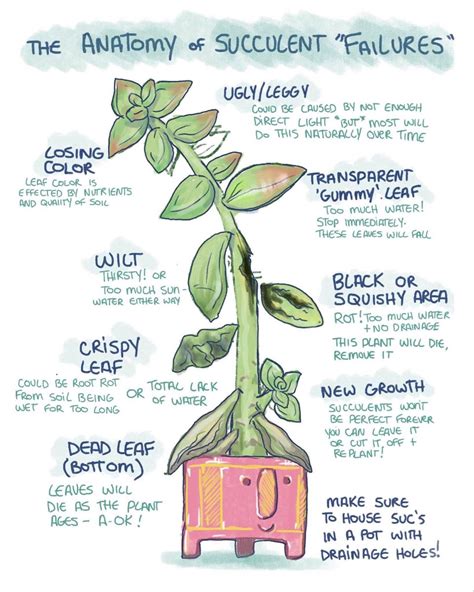 THE ANATOMY OF SUCCULENT "FAILURES"
UGLY/LEGGY
COULD BE CAUSED BY NOT ENOUGH
DIRECT LIGHT *BUT* MOST WILL
DO THIS NATURALLY OVER TIME
LOSING
COLOR
LEAF COLOR IS
EFFECTED BY NUTRIENTS
AND QUALITY OF SOIL
TRANSPARENT
'GUMMY' LEAF
TOO MUCH WATER!
STOP IMMEDIATELY.
THESE LEAVES WILL FALL
WILT
THIRSTY! OR
TOO MUCH SUN-
WATER EITHER WAY
BLACK OR
SQUISHY AREA
ROT! TOO MUCH WATER
+ NO DRAINAGE
THIS PLANT WILL DIE,
REMOVE IT
CRISPY
LEAF
COULD BE ROOT ROT
FROM SOIL BEING
WET FOR TOO LONG
OR TOTAL LACK
OF WATER
NEW GROWTH
SUCCULENTS WON'T
BE PERFECT FOREVER
YOU CAN LEAVE IT
OR CUT IT OFF +
REPLANT!
DEAD LEAF
(BOTTOM)
LEAVES WILL
DIE AS THE PLANT
AGES - A-OK!
MAKE SURE
TO HOUSE SUC'S
IN A POT WITH
DRAINAGE HOLES!